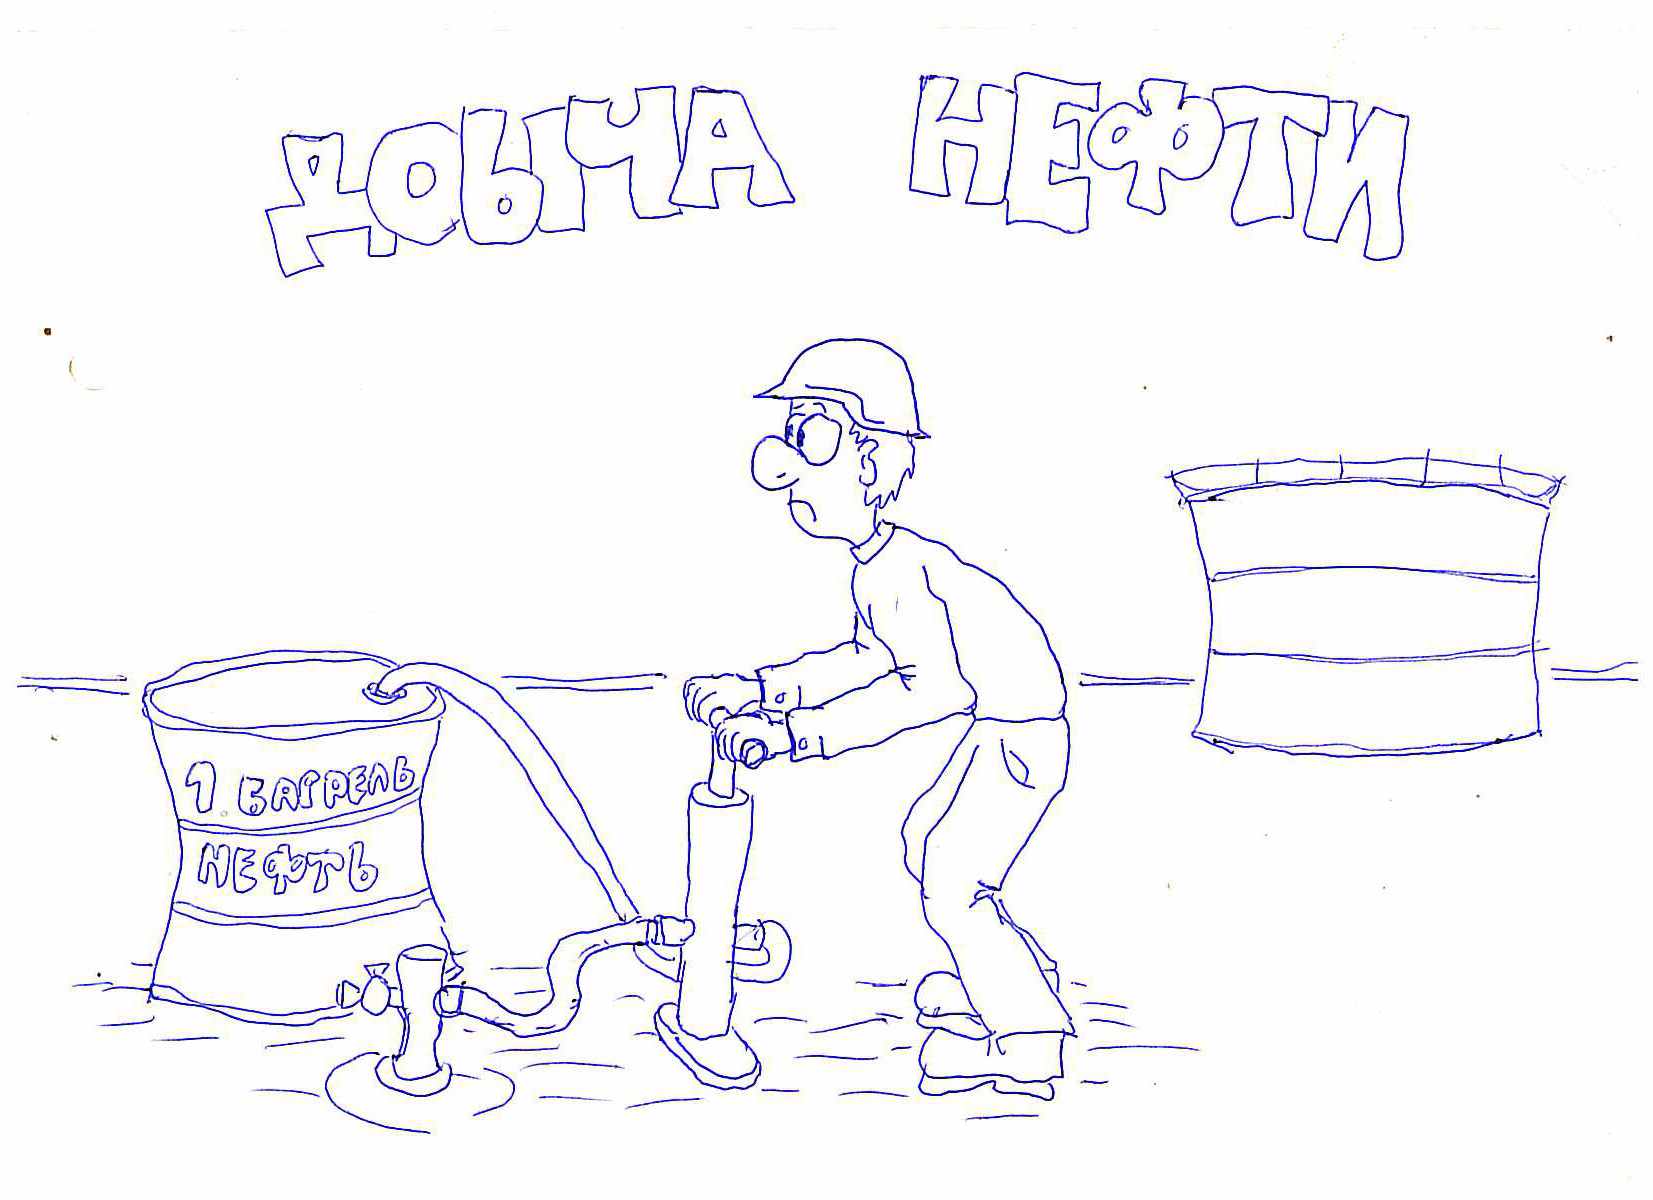 ДОБЫЧА НЕФТИ
1 БАРРЕЛЬ
НЕФТЬ